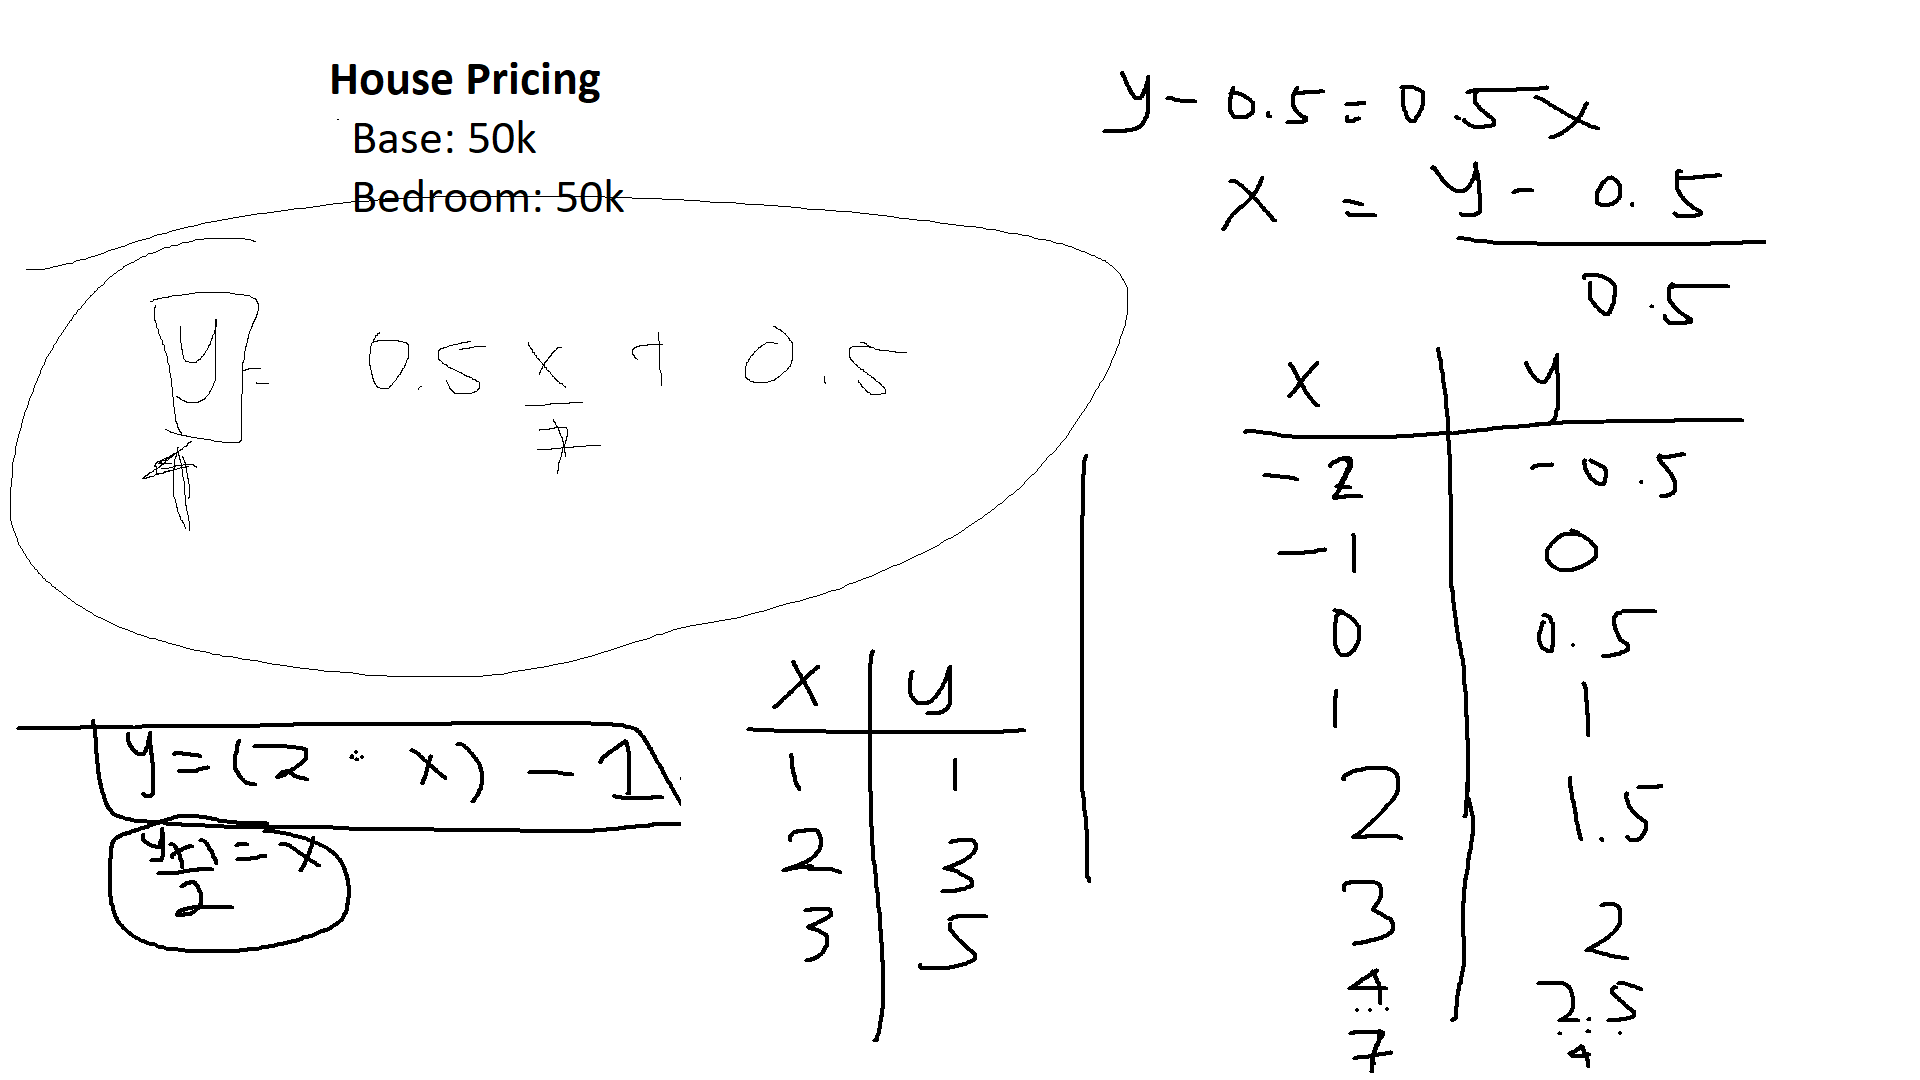 House Pricing
Base: 50k
Bedroom: 50k
y = 0.5 x + 0.5
4 7
y = (2 · x) - 1
y+1 = x
2
x y
1 1
2 3
3 5
y - 0.5 = 0.5 x
x = y - 0.5
0.5
x y
-2 -0.5
-1 0
0 0.5
1 1
2 1.5
3 2
4 2.5
... ...
7 4